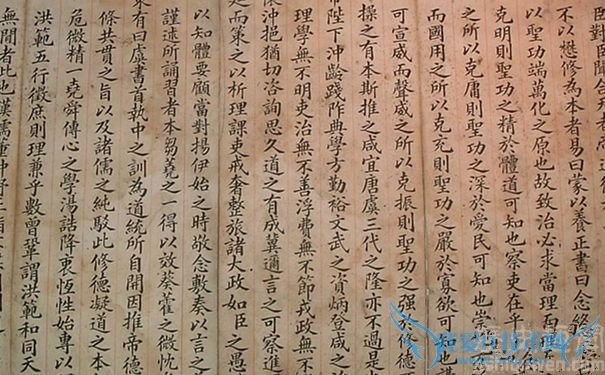 臣對臣聞
不以懋修為本者易曰蒙以養正書曰念終
以聖功端萬化之原也故致治必求當理而
克明則聖功之精於體道可知也察吏在乎
所以克庸則聖功之深於愛民可知也崇
而國用之所以克充則聖功之嚴於寡欲可知也
可宣威而聲威之所以克振則聖功之强修德
操之有本斯推之咸宜唐虞三代之隆亦不過是
帝陛下沖齡踐阼典學方勤裕文武之資炳登咸之
理學無不明吏治無不善浮費無不節戎政無不
懷沖挹猶切咨詢思久道之有成冀邇言之可察進
而策之以析理課吏戒奢整旅諸大政如臣之愚
以知體要顧當對揚伊始之時敬念敷奏以言之
謹述所誦習者本芻蕘之一得以效葵藿之微忱
來有曰虞書首執中之訓為道統所自開因推帝德
條共貫之旨以及諸儒之純駁此修德凝道之本
危微精一堯舜傳心之學湯誥降衷恆性始專以
洪範五行徵庶則理兼乎數曾鞏謂洪範和同天
無聞者此也漢儒董仲舒三